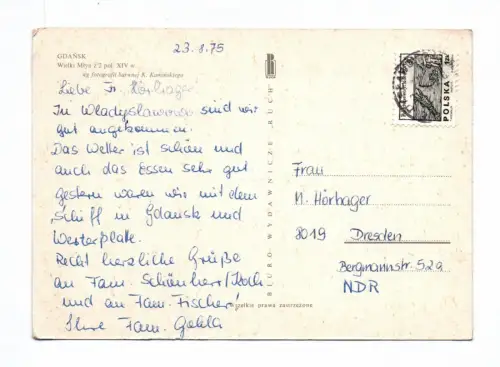 23.8.75
GDAŃSK
Wielki Młyn z 2 poł. XIV w.
wg fotografii barwnej K. Kamińskiego
Liebe Fr. Hörhager
In Władysławowo sind wir
gut angekommen.
Das Wetter ist schön und
auch das Essen sehr gut
gestern waren wir mit dem
Schiff in Gdansk und
Westerplatte.
Recht herzliche Grüße
an Fam. Schönherr/Koch
und an Fam. Fischer!
Ihre Fam.
BIURO WYDAWNICZE "RUCH"
wszelkie prawa zastrzeżone
POLSKA
Frau
M. Hörhager
8019 Dresden
Bergmannstr. 52a
NDR